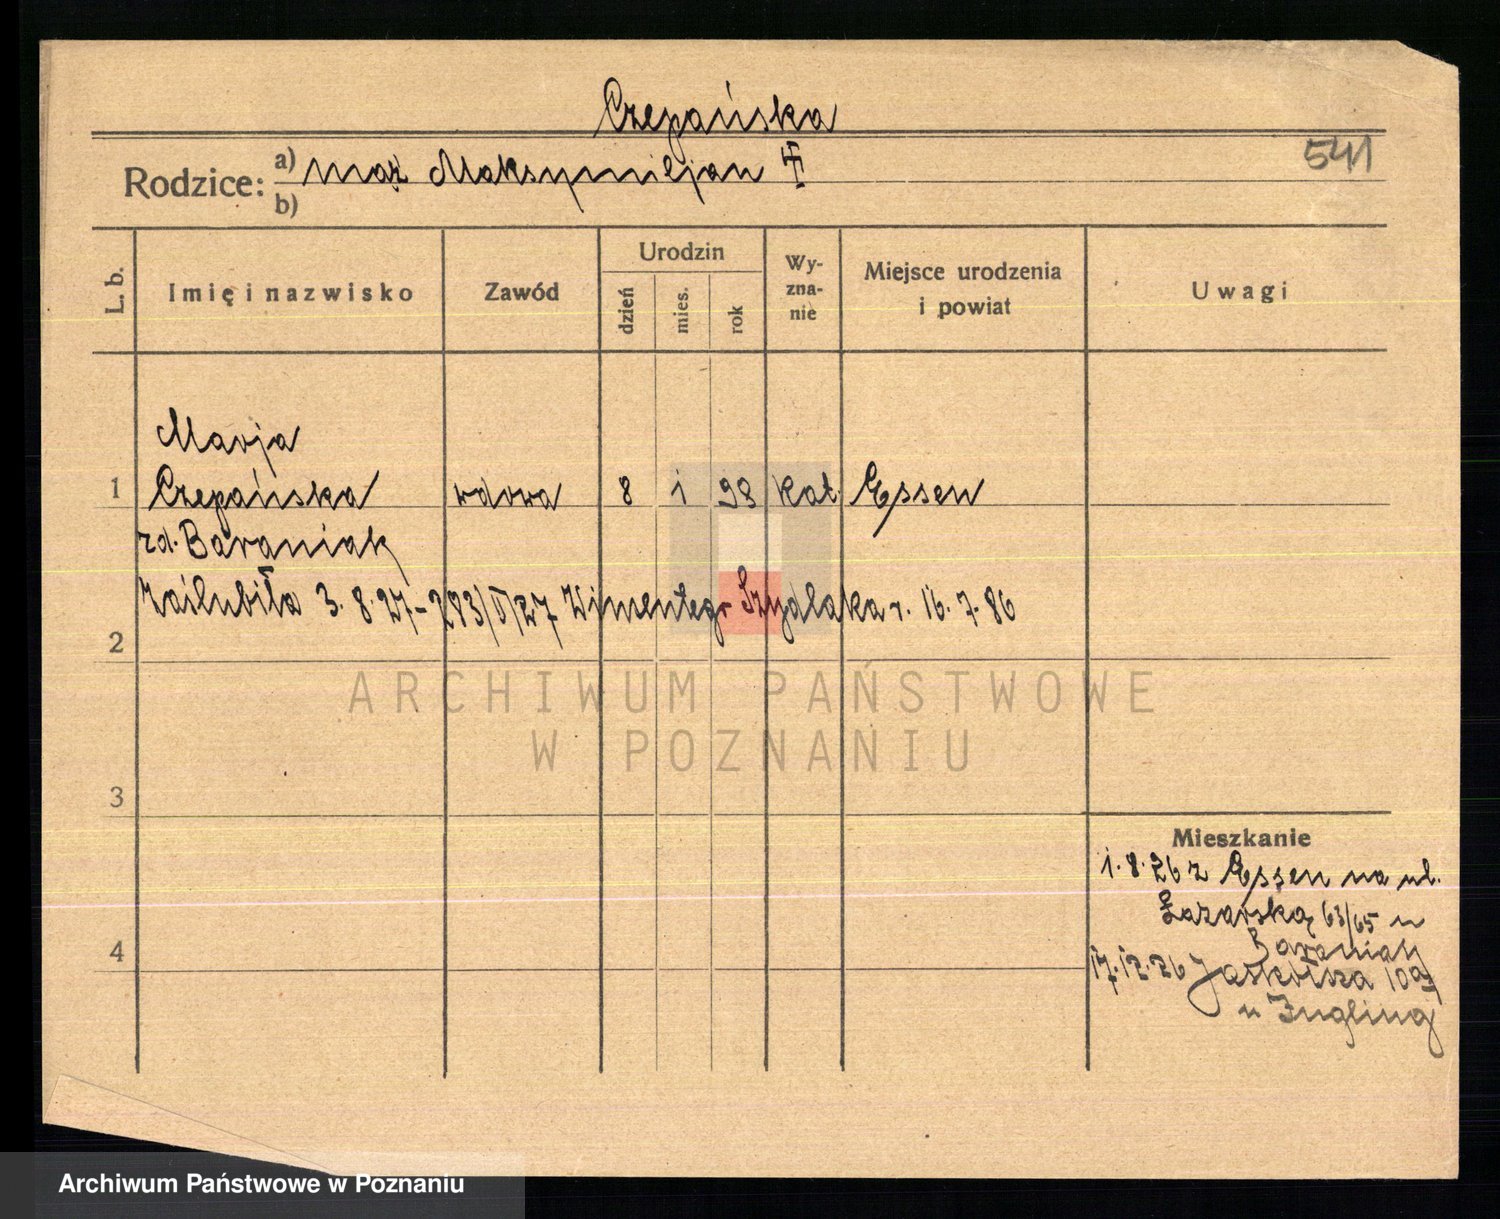 Czepańska
541
Rodzice: a) mąż Maksymiljan
b)
L. b.
Imię i nazwisko
Zawód
Urodzin
dzień
mies.
rok
Wy-
zna-
nie
Miejsce urodzenia
i powiat
Uwagi
Marja
1 Czepańska wdowa 8 1 98 kat Essen
zd. Baraniak
zaślubiła 3. 8. 27 - 283/II/27 Szydlaka r. 16. 7. 86
2
ARCHIWUM PAŃSTWOWE
W POZNANIU
3
Mieszkanie
1. 8. 26 z Essen na ul.
Łazarską 63/65 u
4
Baraniak
17. 12. 26 Jaskółcza 10a
u Jngling
Archiwum Państwowe w Poznaniu